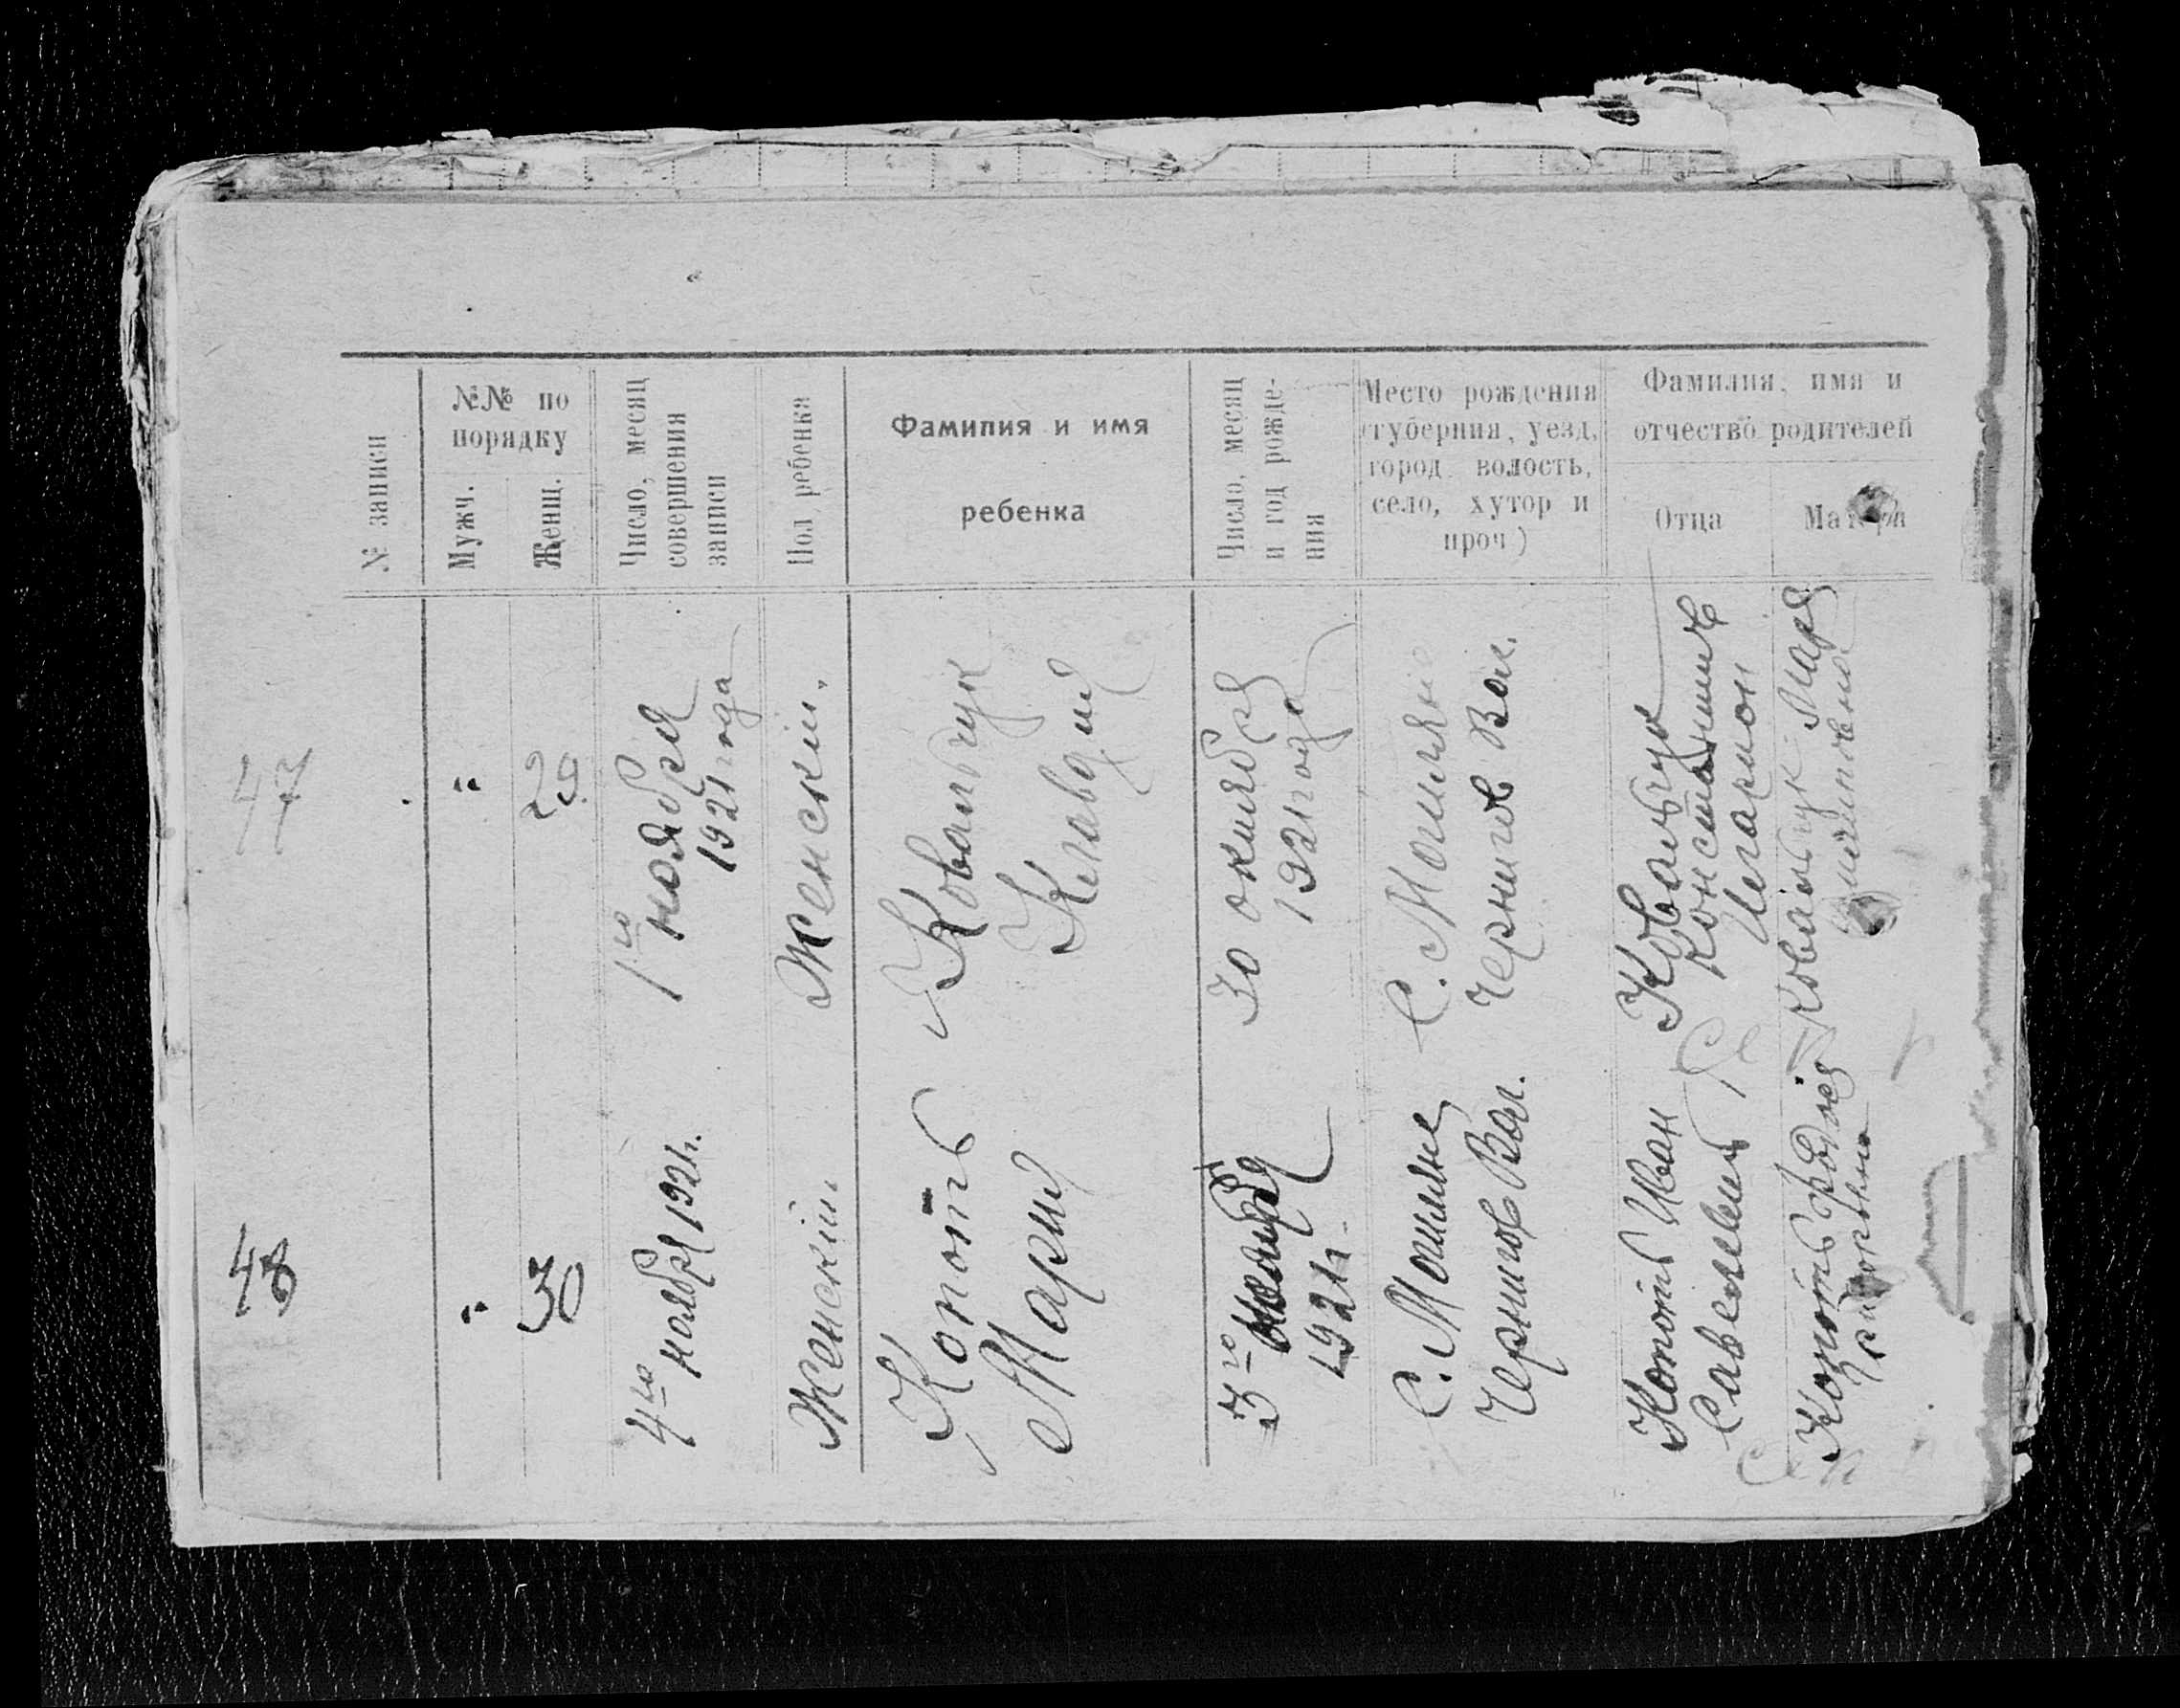 № записи
№№ по
порядку
Мужч.
Женщ.
Число, месяц
совершения
записи
Пол ребенка
Фамилия и имя
ребенка
Число, месяц
и год рожде-
ния
Место рождения
(губерния, уезд,
город, волость,
село, хутор и
проч.)
Фамилия, имя и
отчество родителей
Отца
Матери
47
"
29
1го ноября
1921 года
Женский.
Ковальчук
Клавдия
30 октября
1921 года
С.
Чернигов Вол.
Ковальчук
Констанинов
Ковальчук Мария
48
"
30
4го ноября 1921г.
Женский.
Копоть
Мария
3го ноября
1921г.
С.
Чернигов Вол.
Копоть Иван
Савельев
Копоть